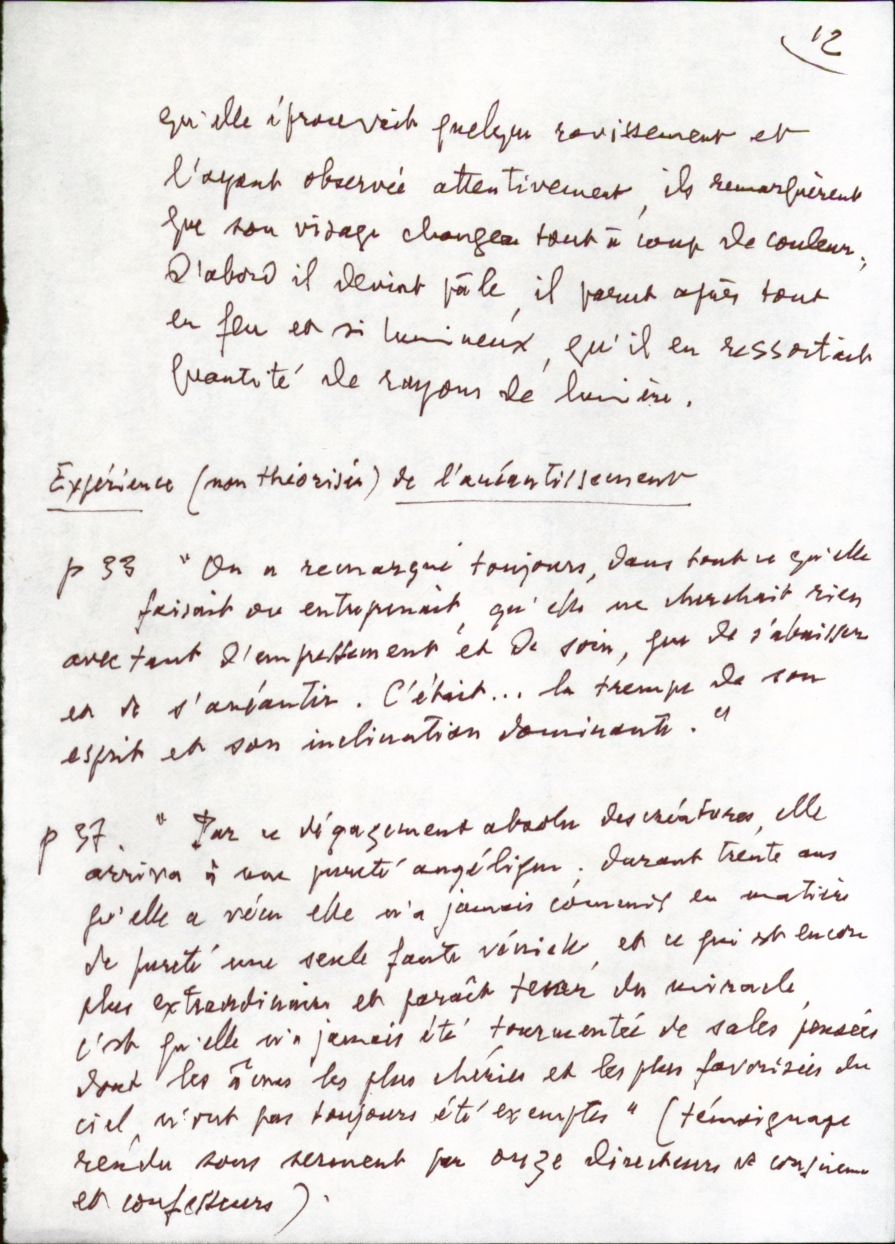 12
qu'elle éprouvait quelque ravissement et
l'ayant observée attentivement, ils remarquèrent
que son visage changea tout à coup de couleur.
D'abord il devint pâle, il parut après tout
en feu et si lumineux, qu'il en ressortait
quantité de rayons de lumière.
Expérience (non théorisée) de l'anéantissement
p 33 "On a remarqué toujours, dans tout ce qu'elle
faisait ou entreprenait, qu'elle ne cherchait rien
avec tant d'empressement et de soin, que de s'abaisser
et de s'anéantir. C'était... la trempe de son
esprit et son inclination dominante."
p 37. "Par ce dégagement absolu des créatures, elle
arriva à une pureté angélique. Durant trente ans
qu'elle a vécu elle n'a jamais commis en matière
de pureté une seule faute vénielle, et ce qui est encore
plus extraordinaire et paraît tenir du miracle,
c'est qu'elle n'a jamais été tourmentée de sales pensées
dont les âmes les plus chéries et les plus favorisées du
ciel, n'ont pas toujours été exemptes" (témoignage
rendu sous serment par onze directeurs de
et confesseurs).